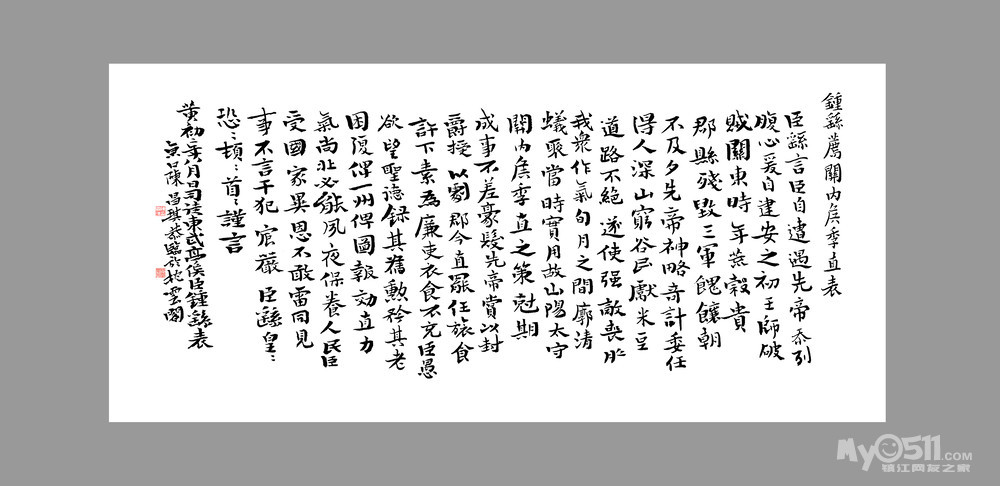 鍾繇薦關內侯季直表
臣繇言臣自遭遇先帝忝列
腹心爰自建安之初王師破
賊關東時年荒穀貴
郡縣殘毀三軍餽饟朝
不及夕先帝神略奇計委任
得人深山窮谷民獻米豆
道路不絕遂使强敵喪膽
我衆作氣旬月之間廓清
蟻聚當時實用故山陽太守
關內侯季直之策尅期
成事不差豪髮先帝賞以封
爵授以劇郡今直罷任旅食
許下素為廉吏衣食不充臣愚
欲望聖德錄其舊勳矜其老
困復俾一州俾圖報効直力
氣尚壯必能夙夜保養人民臣
受國家異恩不敢雷同見
事不言干犯宸嚴臣繇皇:
恐:頓:首:謹言
黄初二年八月日司徒東武亭侯臣鍾繇表
陳昌琪恭臨於挹雲閣
My0511.COM
镇江网友之家